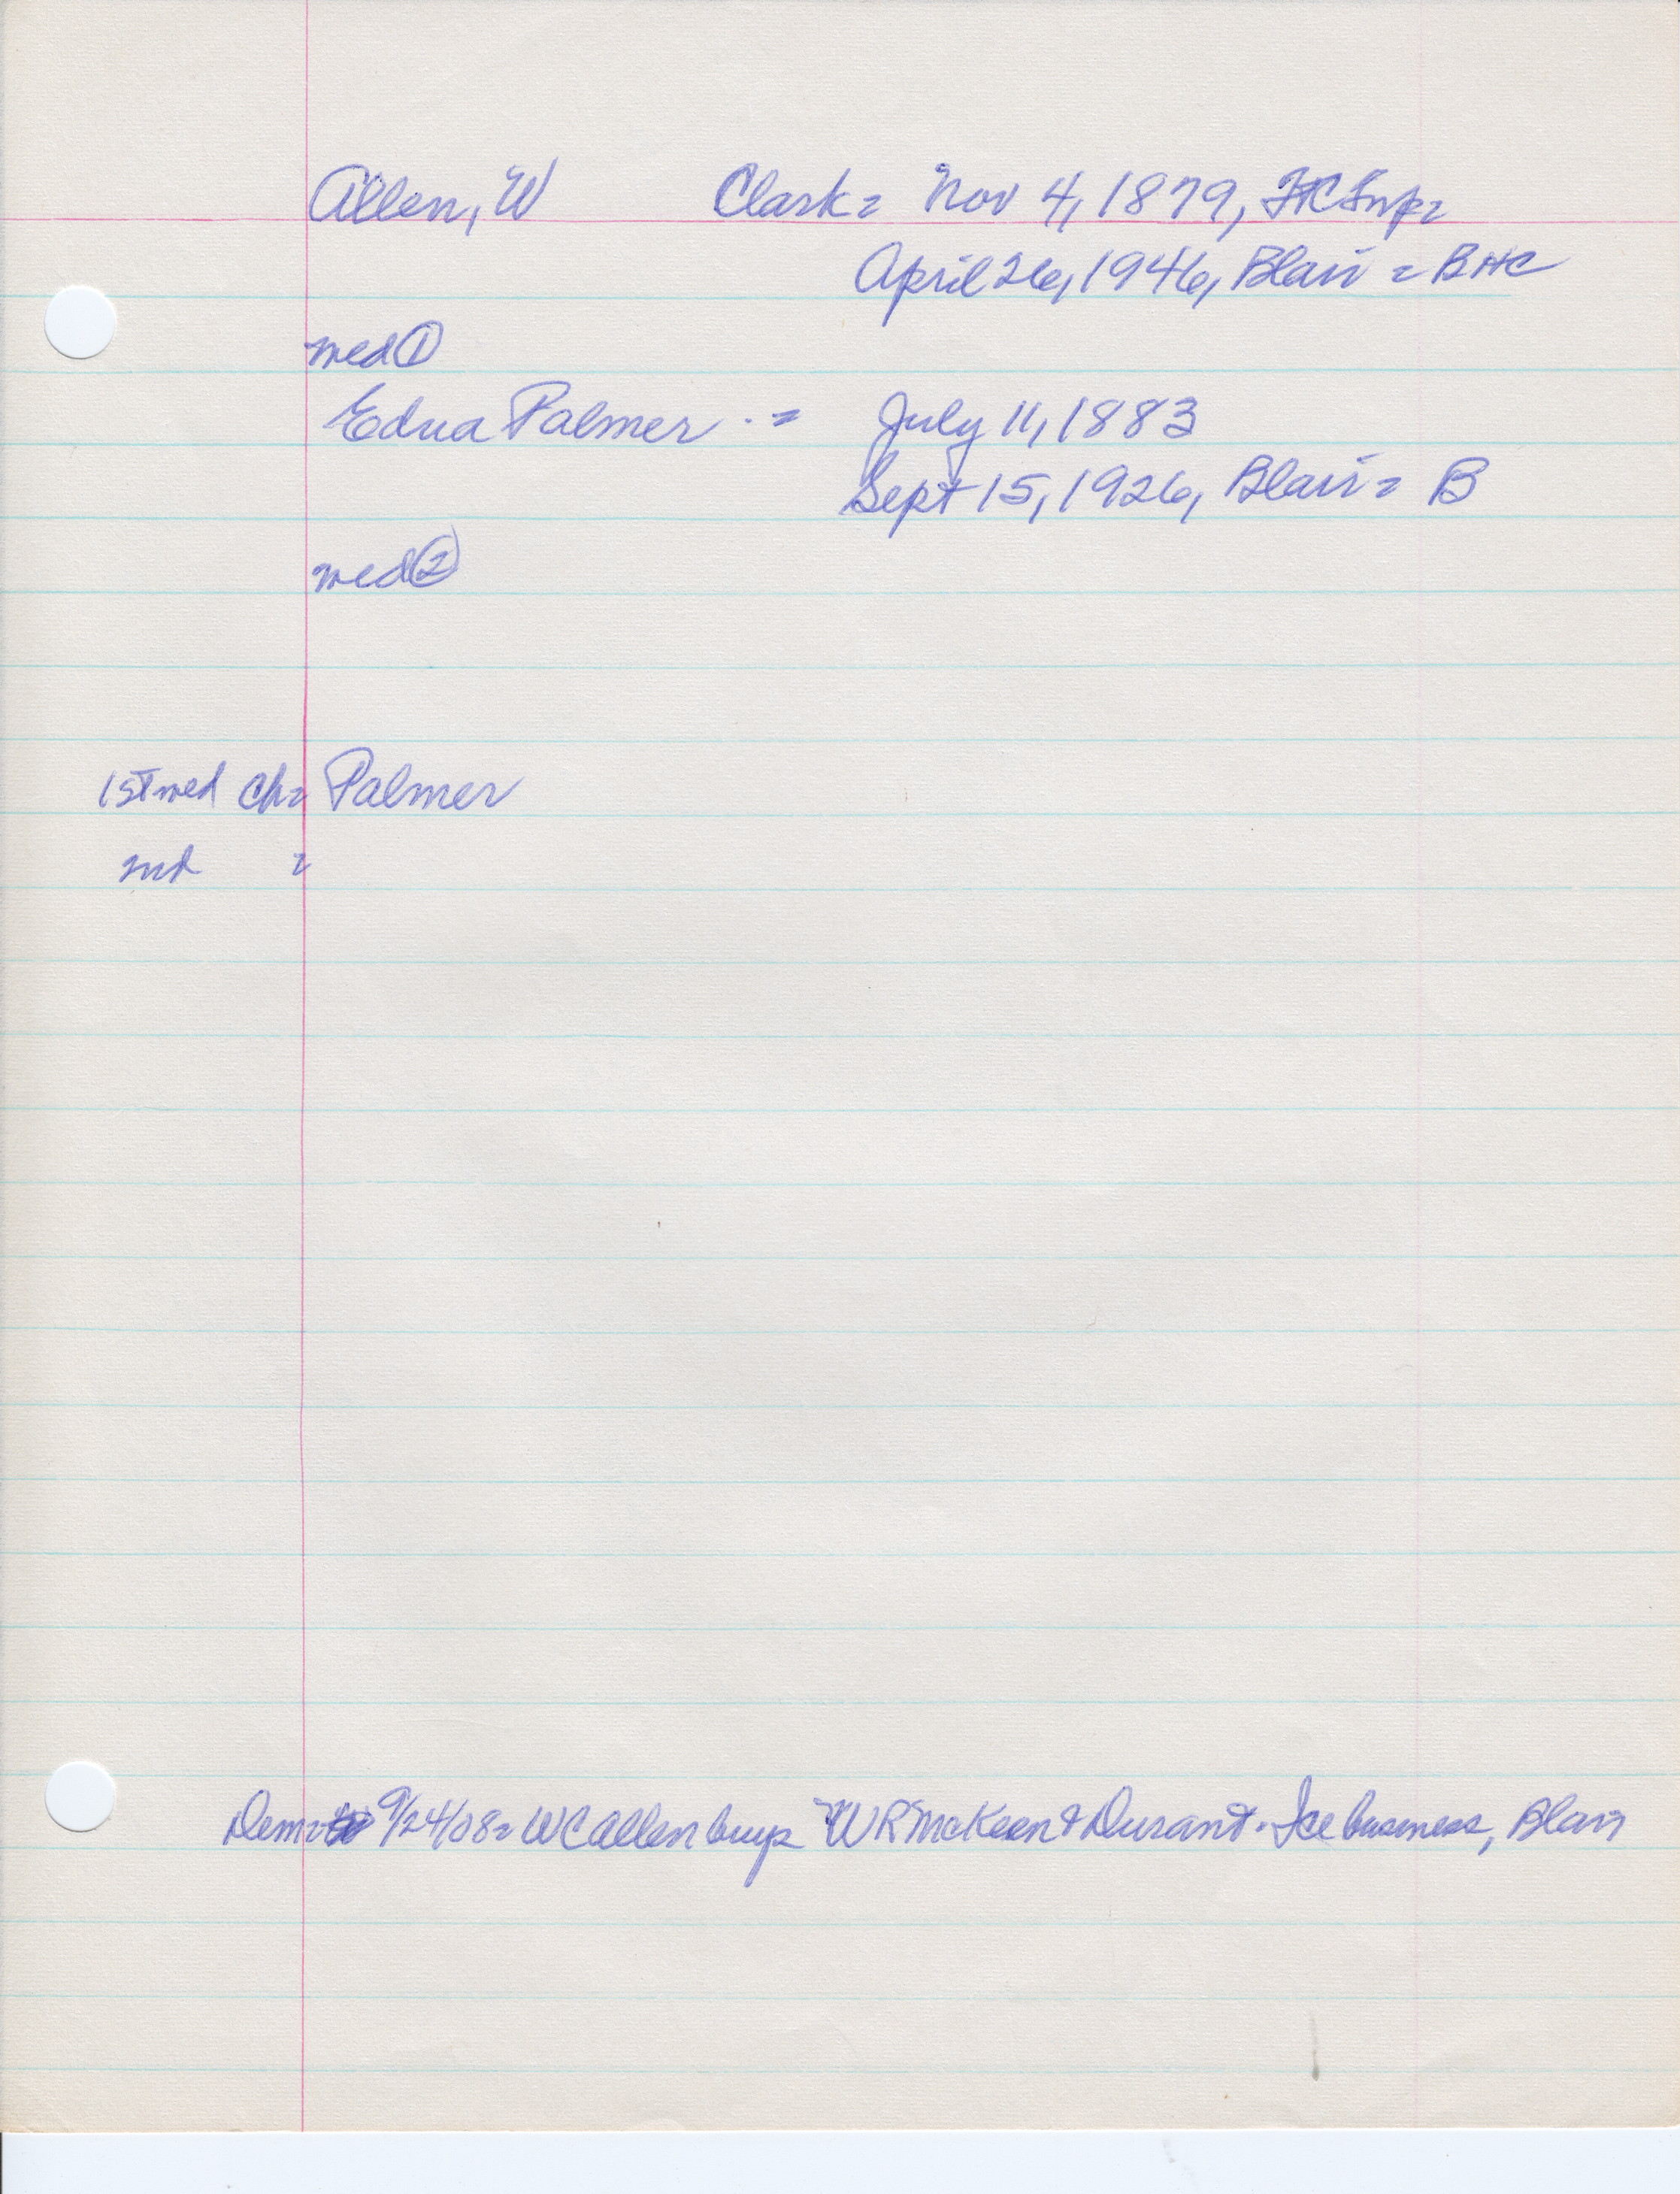 Allen, W Clark = Nov 4, 1879, FC Twp =
April 26, 1946, Blair = BHC
med ①
Edna Palmer . = July 11, 1883
Sept 15, 1926, Blair = B
med ②
1st med Ch = Palmer
2nd =
Dem = 9/24/08 = WC Allen buys WR McKeen & Durant. Ice business, Blair